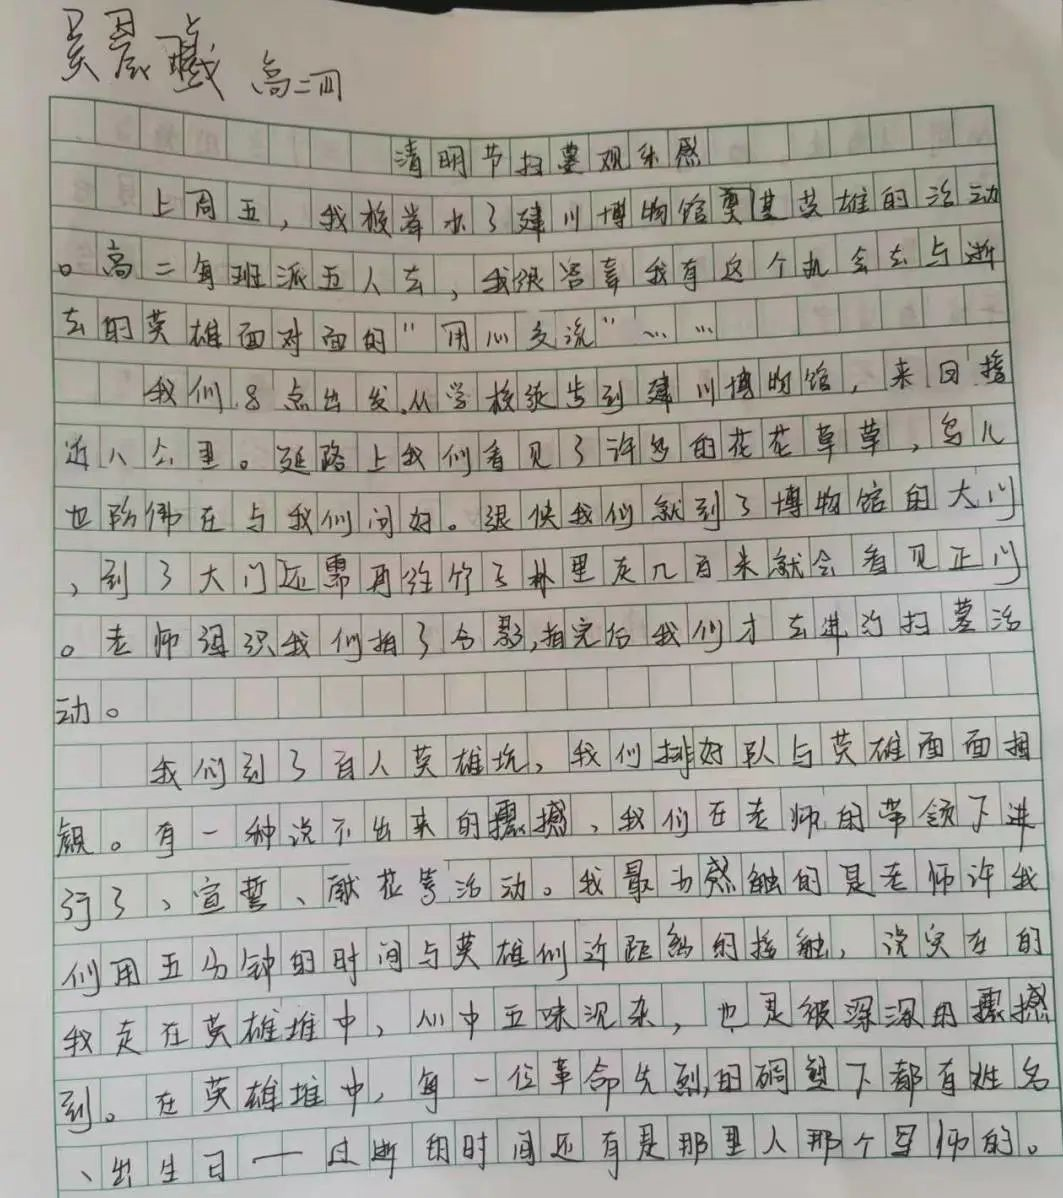 吴晨曦 高二四
清明节扫墓观后感
上周五，我校举办了建川博物馆奠基英雄的活动
。高二每班派五人去，我很容幸我有这个机会去与逝
去的英雄面对面的“用心交流”……
我们8点出发,从学校徒步到建川博物馆，来回接
近八公里。延路上我们看见了许多的花花草草，鸟儿
也防佛在与我们问好。很快我们就到了博物馆的大门
，到了大门还需再往竹子林里走几百米就会看见正门
。老师组织我们拍了合影,拍完后我们才去进行扫墓活
动。
我们到了百人英雄坑，我们排好队与英雄面面相
觑。有一种说不出来的震撼、我们在老师的带领下进
行了、宣誓、献花等活动。我最为感触的是老师许我
们用五分钟的时间与英雄们近距离的接触，说实在的
我走在英雄堆中，心中五味沉杂，也是被深深的震撼
到。在英雄堆中，每一位革命先烈,的碉塑下都有姓名
、出生日一过断的时间还有是那里人那个军师的。